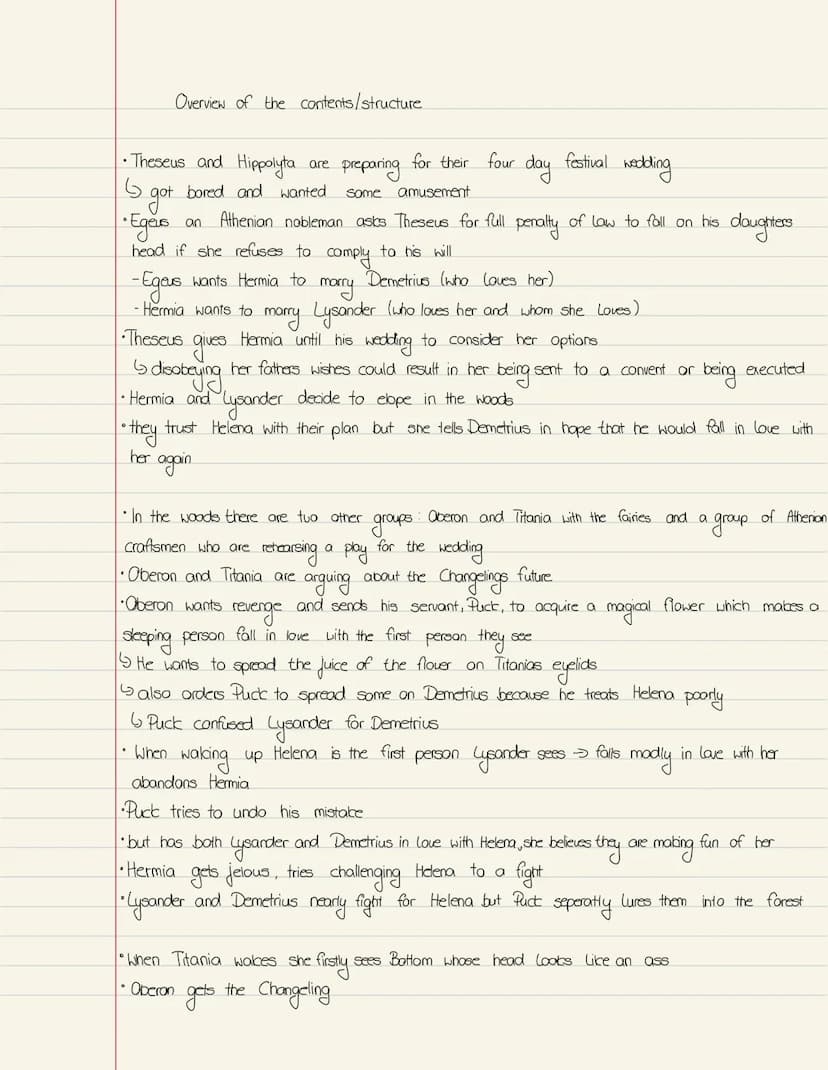 Overview of the contents/structure
• Theseus and Hippolyta are preparing for their four day festival wedding
↳ got bored and wanted some amusement
• Egeus an Athenian nobleman asks Theseus for full penalty of law to fall on his daughters
head if she refuses to comply to his will
- Egeus wants Hermia to marry Demetrius (who loves her)
- Hermia wants to marry Lysander (who loves her and whom she loves)
• Theseus gives Hermia until his wedding to consider her options
↳ disobeying her fathers wishes could result in her being sent to a convent or being executed
• Hermia and Lysander decide to elope in the woods
• they trust Helena with their plan but she tells Demetrius in hope that he would fall in love with
her again
• In the woods there are two other groups: Oberon and Titania with the fairies and a group of Athenian
craftsmen who are rehearsing a play for the wedding
• Oberon and Titania are arguing about the Changelings future
• Oberon wants revenge and sends his servant, Puck, to acquire a magical flower which makes a
sleeping person fall in love with the first person they see
↳ He wants to spread the juice of the flower on Titanias eyelids
↳ also orders Puck to spread some on Demetrius because he treats Helena poorly
↳ Puck confused Lysander for Demetrius
• When waking up Helena is the first person Lysander sees → falls madly in love with her
abandons Hermia
• Puck tries to undo his mistake
• but has both Lysander and Demetrius in love with Helena, she believes they are making fun of her
• Hermia gets jelous, tries challenging Helena to a fight
• Lysander and Demetrius nearly fight for Helena but Puck seperatly lures them into the forest
• When Titania wakes she firstly sees Bottom whose head looks like an ass
• Oberon gets the Changeling